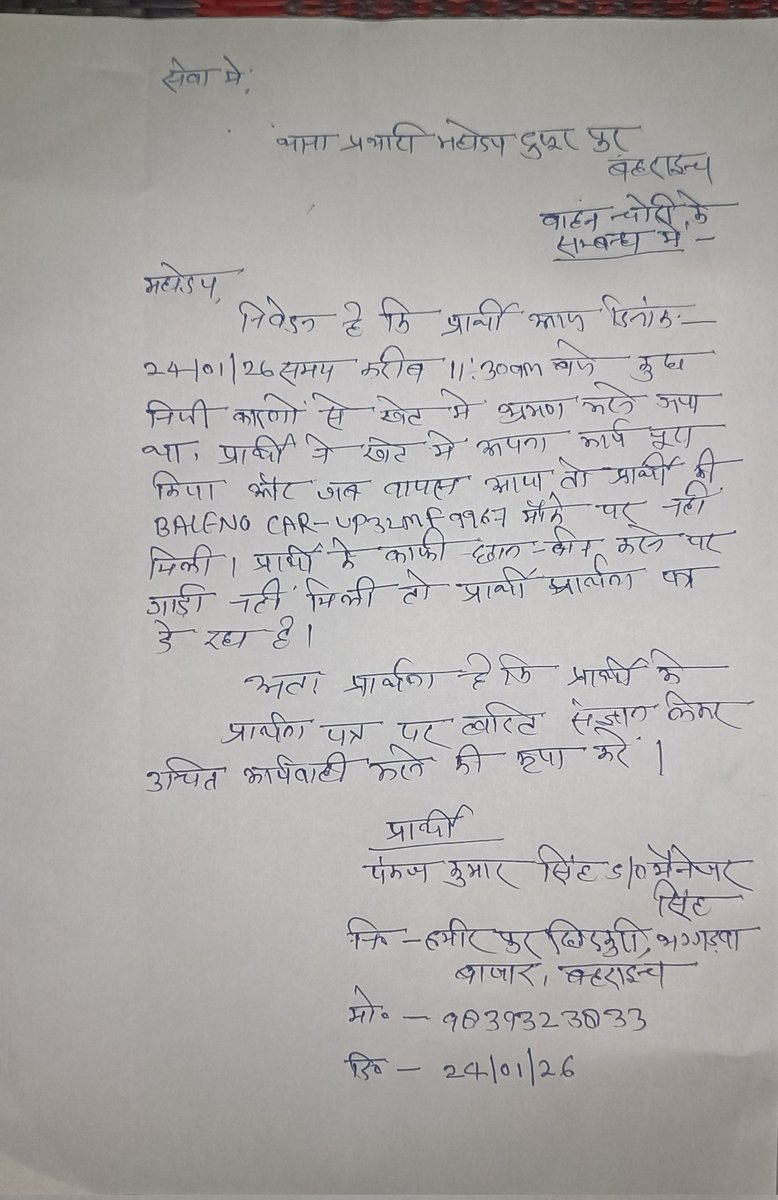 सेवा मे,
थाना प्रभारी महोदय हुजूर पुर
बहराइच
वाहन चोरी के
सम्बन्ध में -
महोदय,
निवेदन है कि प्रार्थी आज दिनांक -
24/01/26 समय करीब 11:30am बजे कुछ
निजी कारणों से खेत मे भ्रमण करने गया
था, प्रार्थी ने खेत मे अपना कार्य पूरा
किया और जब वापस आया तो प्रार्थी की
BALENO CAR-UP32MF9967 मौके पर नहीं
मिली । प्रार्थी के काफी छान-बीन करने पर
गाड़ी नहीं मिली तो प्रार्थी प्रार्थना पत्र
दे रहा है ।
अतः प्रार्थना है कि प्रार्थी के
प्रार्थना पत्र पर त्वरित संज्ञान लेकर
उचित कार्यवाही करने की कृपा करें ।
प्रार्थी
पंकज कुमार सिंह S/O मैनेजर
सिंह
नि - हमीर पुर भग्गड़वा
बाजार, बहराइच
मो० - 9839323833
दि० - 24/01/26